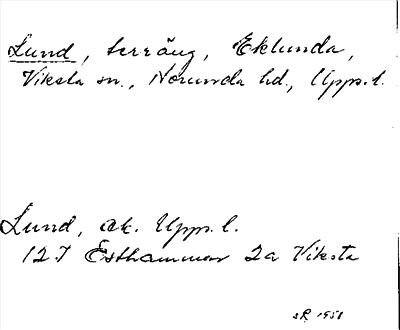 Lund, terräng, Eklunda,
Viksta sn., Norunda hd., Upps. l.
Lund, ak. Upps. l.
12 I Östhammar 2a Viksta
SR 1958